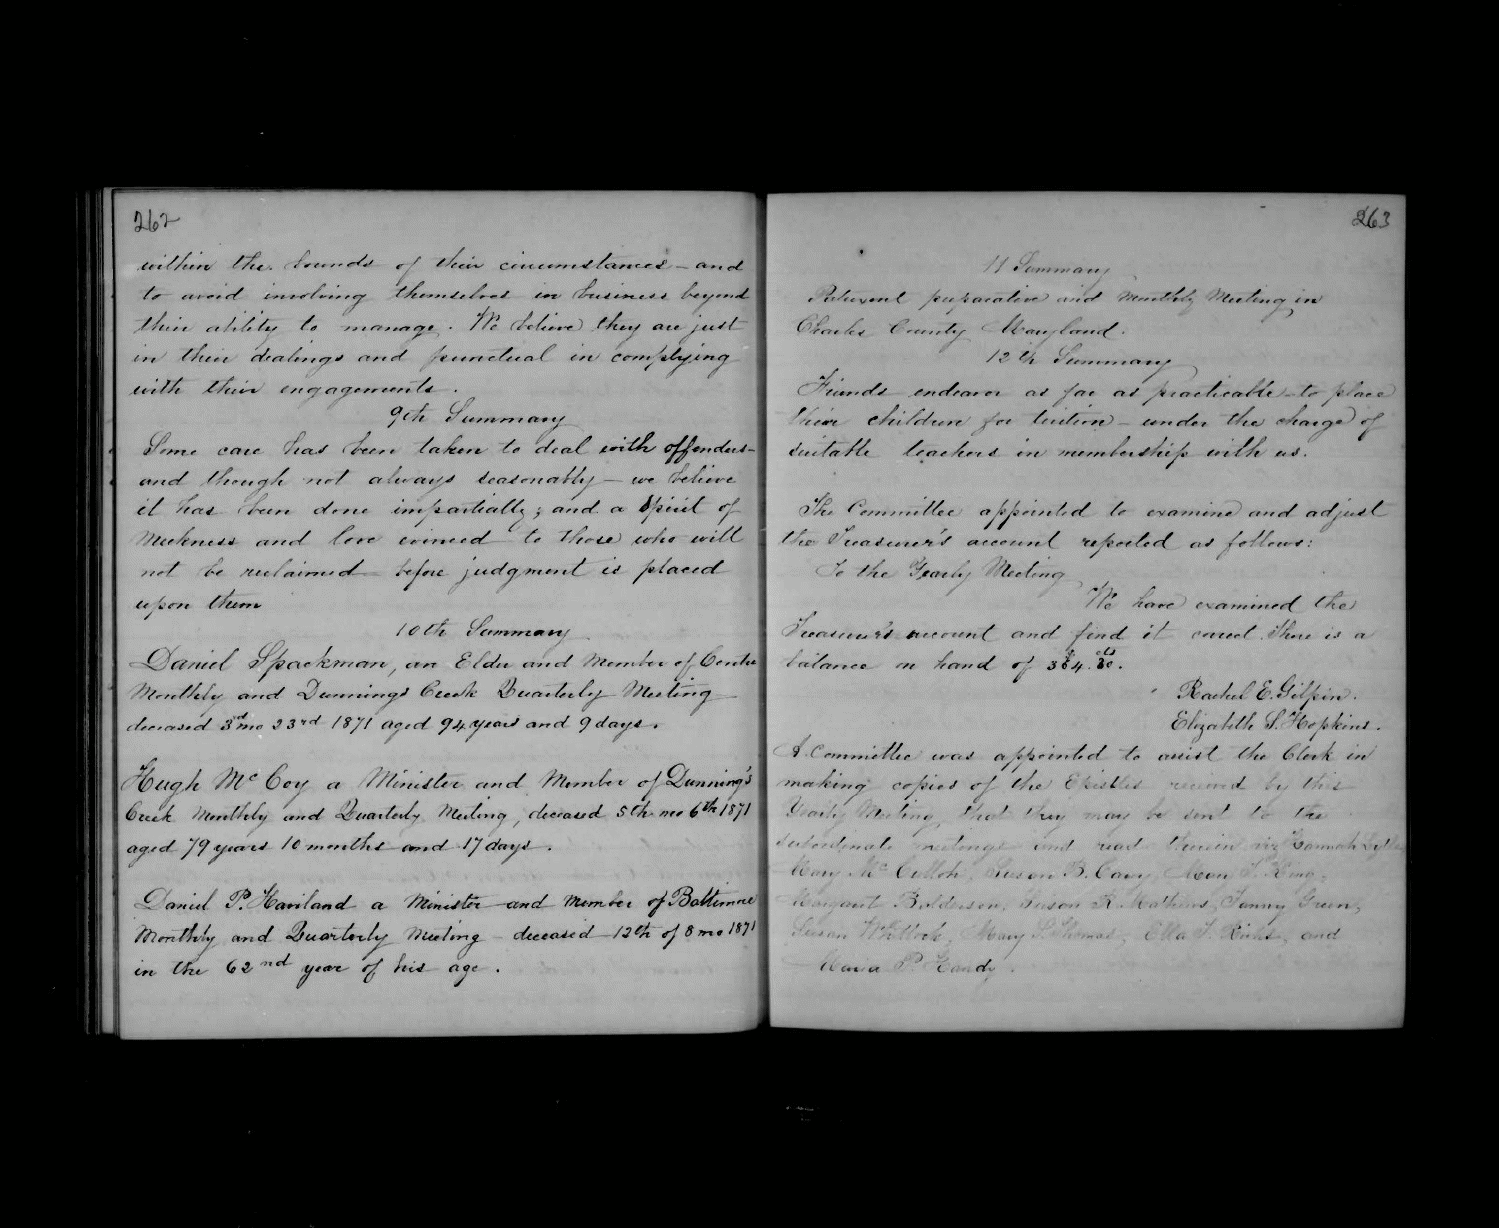 262
within the bounds of their circumstances – and
to avoid involving themselves in business beyond
their ability to manage. We believe they are just
in their dealings and punctual in complying
with their engagements.
9th Summary
Some care has been taken to deal with offenders –
and though not always seasonably – we believe
it has been done impartially; and a Spirit of
Meekness and love evinced to those who will
not be reclaimed before judgment is placed
upon them
10th Summary
Daniel Spackman, an Elder and Member of Centre
Monthly and Dunnings Creek Quarterly Meeting
deceased 3rd mo 23rd 1871 aged 94 years and 9 days.
Hugh McCoy a Minister and Member of Dunning's
Creek Monthly and Quarterly Meeting, deceased 5th mo 6th 1871
aged 79 years 10 months and 17 days.
Daniel P. Haviland a Minister and Member of Baltimore
Monthly and Quarterly Meeting – deceased 12th of 8 mo 1871
in the 62nd year of his age.
263
11 Summary
preparative and Monthly Meeting in
Charles County Maryland.
12th Summary
Friends endeavor as far as practicable to place
their children for tuition – under the charge of
suitable teachers in membership with us.
The Committee appointed to examine and adjust
the Treasurer's account reported as follows:
To the Yearly Meeting
We have examined the
Treasurer's account and find it correct. There is a
balance on hand of
Rachel E. Gilpin.
Elizabeth S. Hopkins.
A Committee was appointed to assist the Clerk in
making copies of the Epistles received by this
Yearly Meeting, that they may be sent to the
subordinate meetings and read therein viz Hannah
Mary Susan B. Cary,
Margaret Balderson, Susan R. Mathews, Fanny Green,
Susan Whitlock, Mary S. Thomas, Ella and
Maria P. Handy.